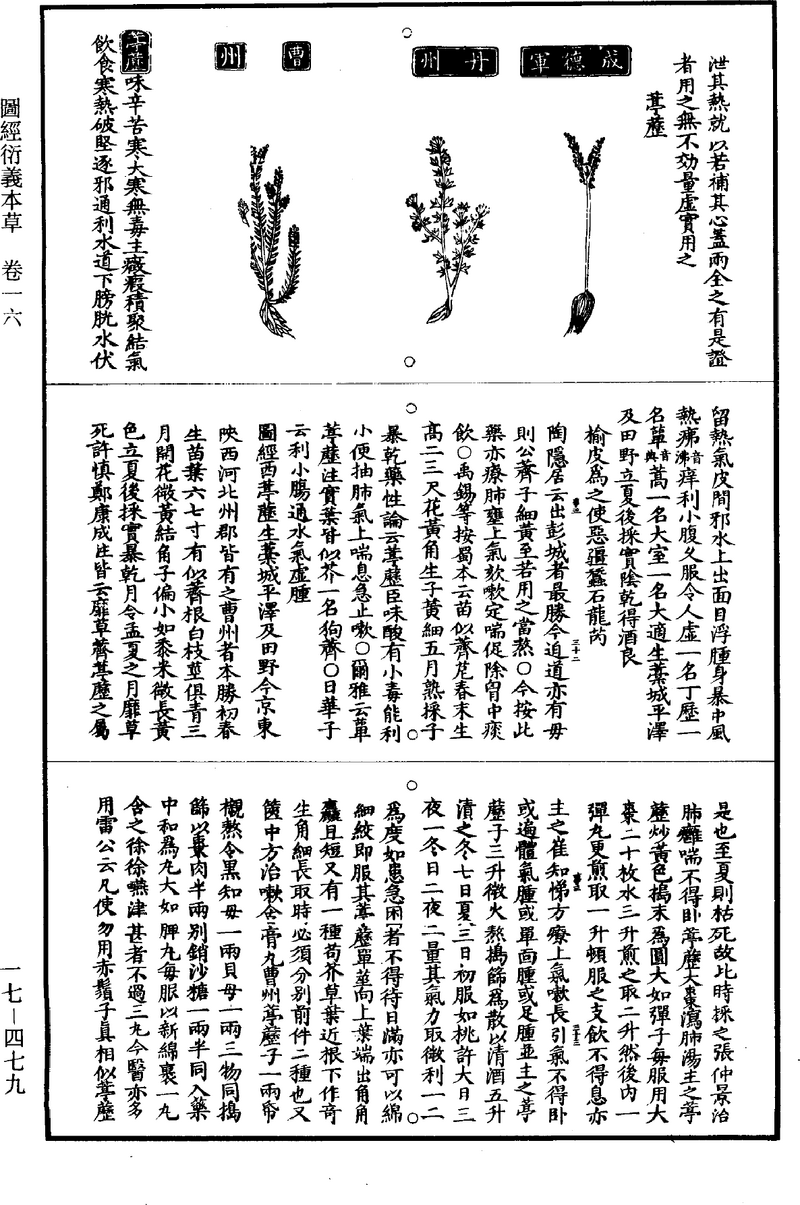 圖經衍義本草　卷一六
一七－四七九
泄其熱就以若補其心蓋兩全之有是證
者用之無不効量虛實用之
葶藶
成德軍
丹州
曹州
葶藶味辛苦寒大寒無毒主癥瘕積聚結氣
飲食寒熱破堅逐邪通利水道下膀胱水伏
留熱氣皮間邪水上出面目浮腫身暴中風
熱痱音沸痒利小腹久服令人虛一名丁歷一
名蕇音典蒿一名大室一名大適生藁城平澤
及田野立夏後採實陰乾得酒良
榆皮為之使惡殭蠶石龍芮
陶隱居云出彭城者最勝今近道亦有母
則公薺子細黃至若用之當熬○今按此
藥亦療肺壅上氣欬嗽定喘促除胷中痰
飲○禹錫等按蜀本云苗似薺苨春末生
高二三尺花黃角生子黃細五月熟採子
暴乾藥性論云葶藶臣味酸有小毒能利
小便抽肺氣上喘息急止嗽○爾雅云蕇
葶藶注實葉皆似芥一名狗薺○日華子
云利小腸通水氣虛腫
圖經西葶藶生藁城平澤及田野今京東
陝西河北州郡皆有之曹州者本勝初春
生苗葉六七寸有似薺根白枝莖俱青三
月開花微黃結角子偏小如黍米微長黃
色立夏後採實暴乾月令孟夏之月靡草
死許慎鄭康成注皆云靡草薺葶藶之屬
是也至夏則枯死故比時採之張仲景治
肺癰喘不得卧葶藶大棗瀉肺湯主之葶
藶炒黃色搗末為圓大如彈子每服用大
棗二十枚水三升煎之取二升然後內一
彈丸更煎取一升頓服之支飲不得息亦
主之崔知悌方療上氣嗽長引氣不得卧
或遍體氣腫或單面腫或足腫並主之葶
藶子三升微火熬搗篩為散以清酒五升
漬之冬七日夏三日初服如桃許大日三
夜一冬日二夜二量其氣力取微利一二
為度如患急困者不得待日滿亦可以綿
細絞即服其葶藶單莖向上葉端出角角
麤且短又有一種苟芥草葉近根下作奇
生角細長取時必須分別前件二種也又
篋中方治嗽含膏丸曹州葶藶子一兩帋
襯熬令黑知母一兩貝母一兩三物同搗
篩以棗肉半兩別銷沙糖一兩半同入藥
中和為丸大如脾丸每服以新綿裹一丸
含之徐徐嚥津甚者不過三丸今醫亦多
用雷公云凡使勿用赤鬚子真相似葶藶